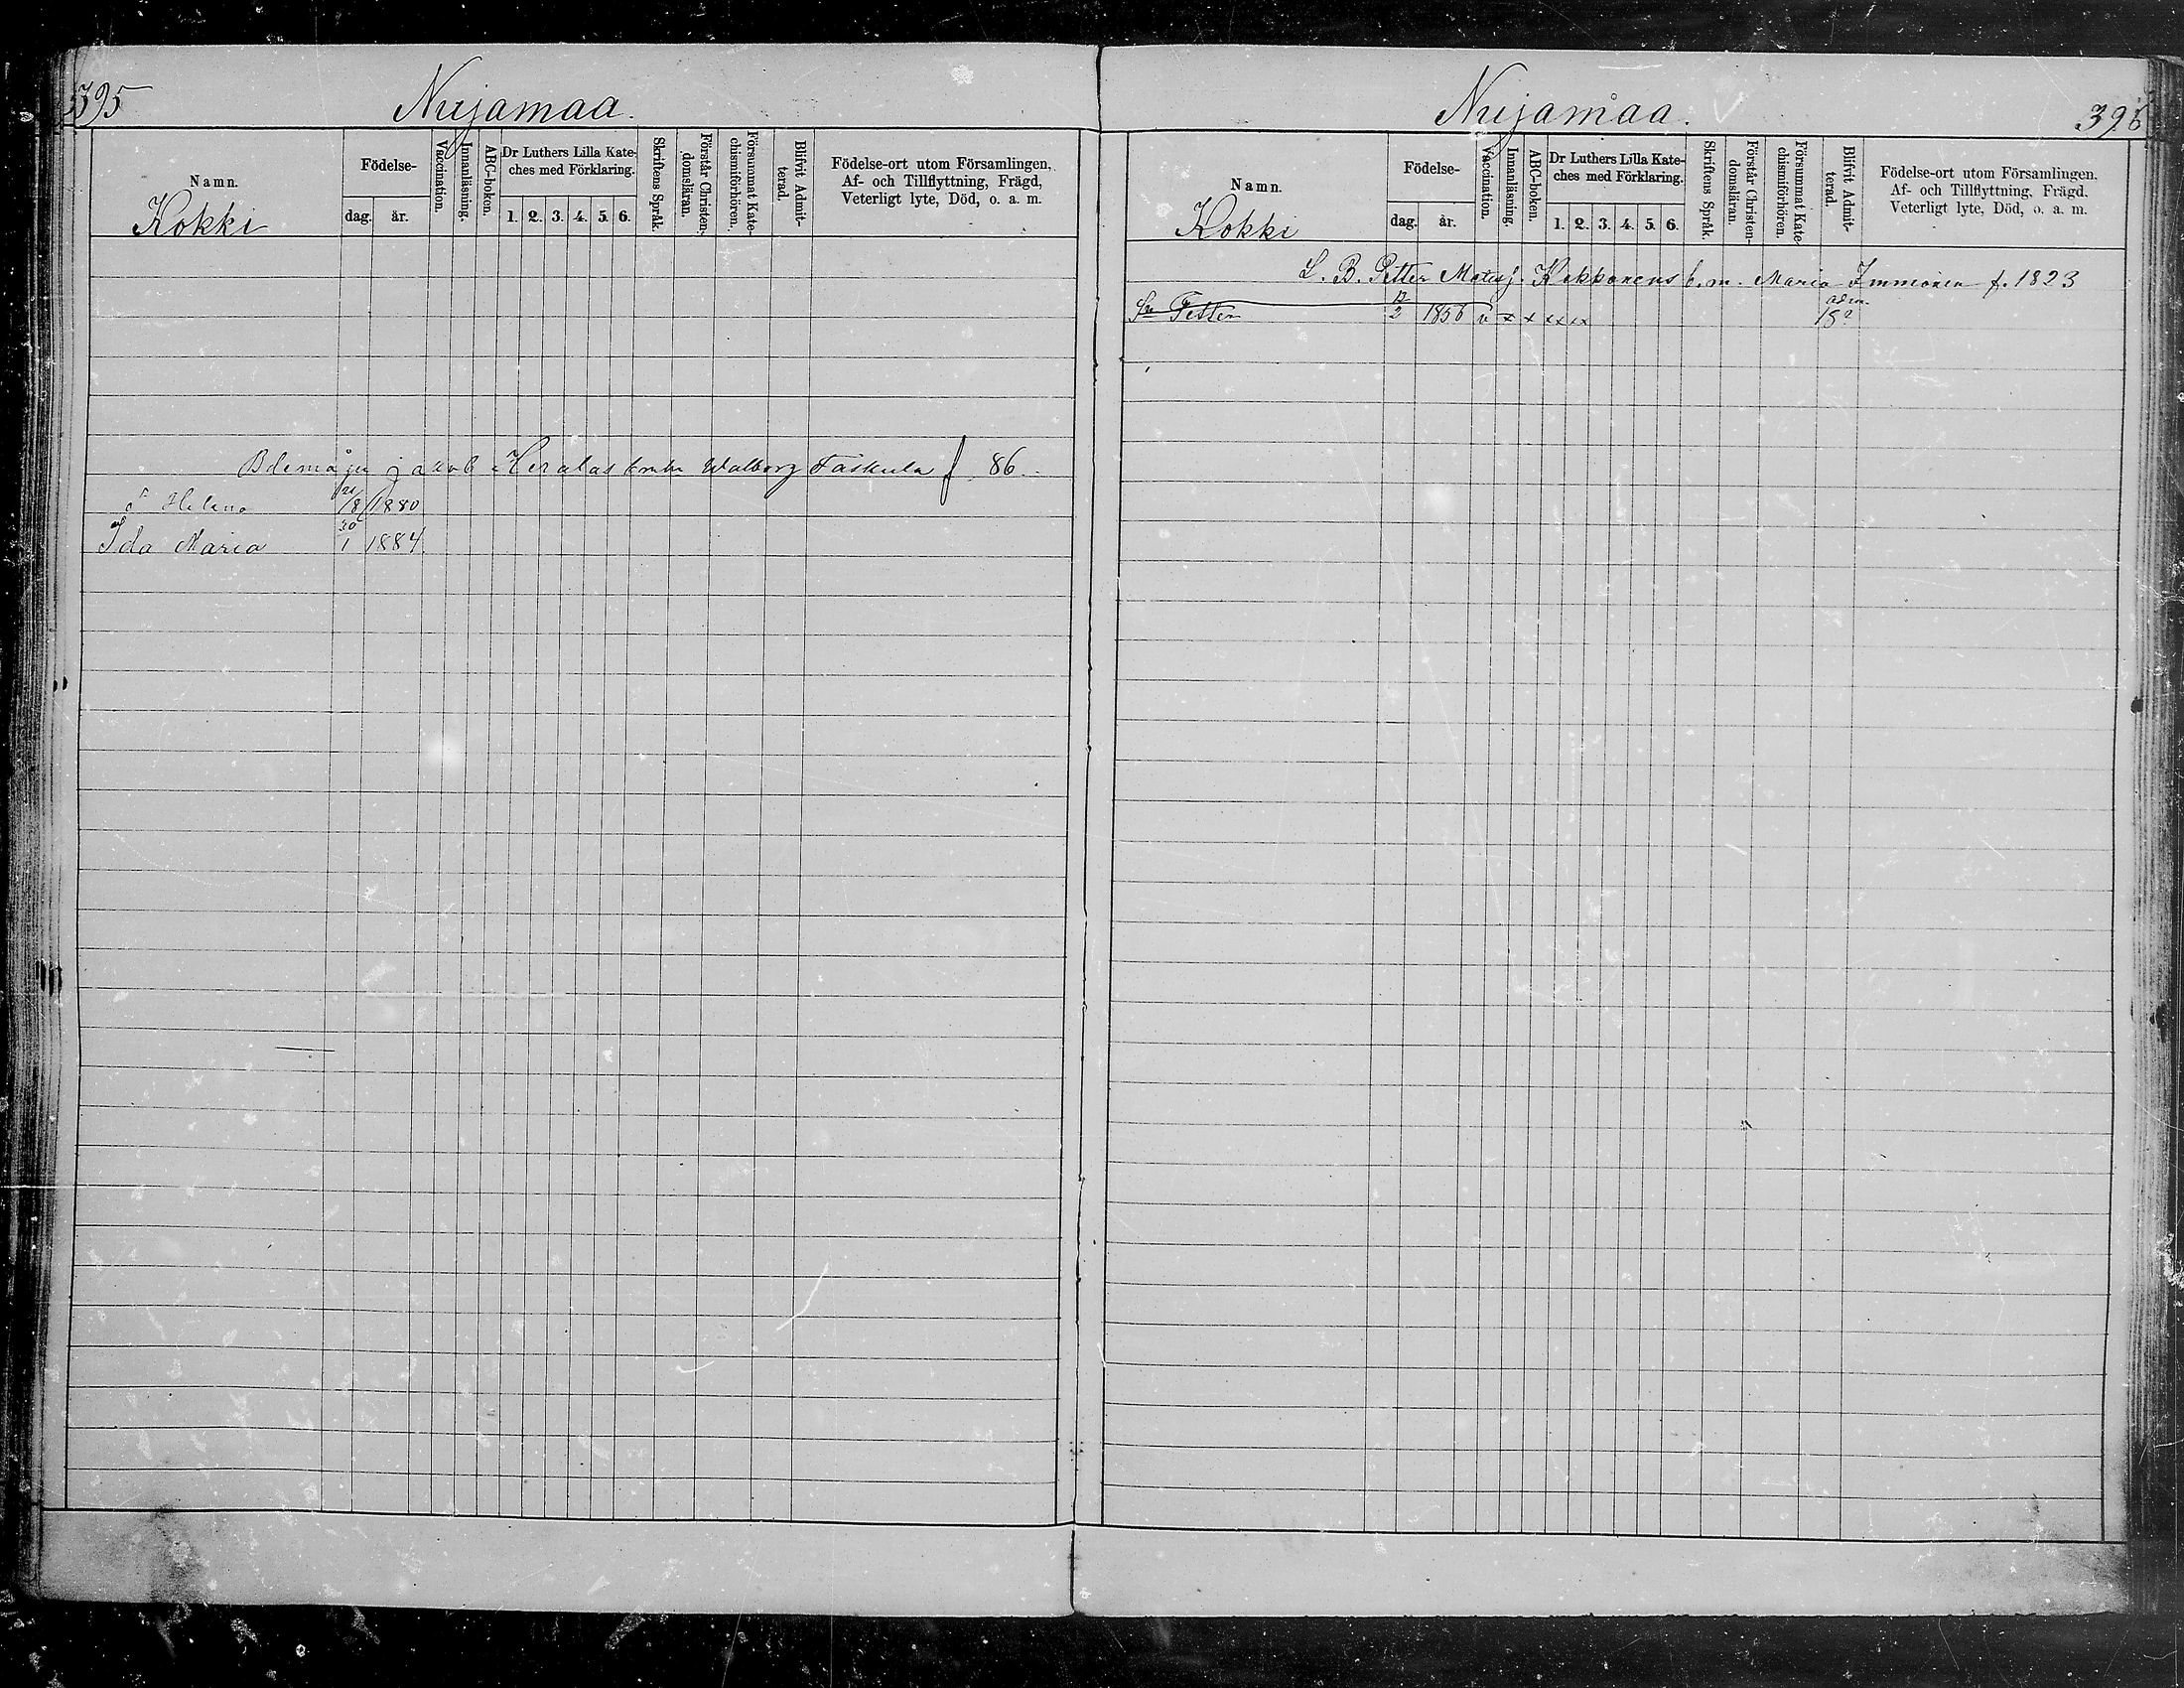 395
Nuijamaa.
Namn.
Kokki
Födelse-
dag.
år.
Vaccination.
Innanläsning.
ABC-boken.
Dr Luthers Lilla Kate-
ches med Förklaring.
1. 2. 3. 4. 5. 6.
Skriftens Språk.
Förstår Christen-
domsläran.
Försummat Kate-
chismiförhören.
Blifvit Admit-
terad.
Födelse-ort utom Församlingen,
Af- och Tillflyttning, Frägd,
Veterligt lyte, Död, o. a. m.
Jakob Walborg f 86
Helena 8 1880
Ida Maria 30 1 1884
Nuijamaa.
396
Namn.
Kokki
Födelse-
dag.
år.
Vaccination.
Innanläsning.
ABC-boken.
Dr Luthers Lilla Kate-
ches med Förklaring.
1. 2. 3. 4. 5. 6.
Skriftens Språk.
Förstår Christen-
domsläran.
Försummat Kate-
chismiförhören.
Blifvit Admit-
terad.
Födelse-ort utom Församlingen,
Af- och Tillflyttning, Frägd,
Veterligt lyte, Död, o. a. m.
L. B. Petter Matsf. Kokkonens Maria Immonen f. 1823
Petter 12 2 1856 v x x x x x adm.